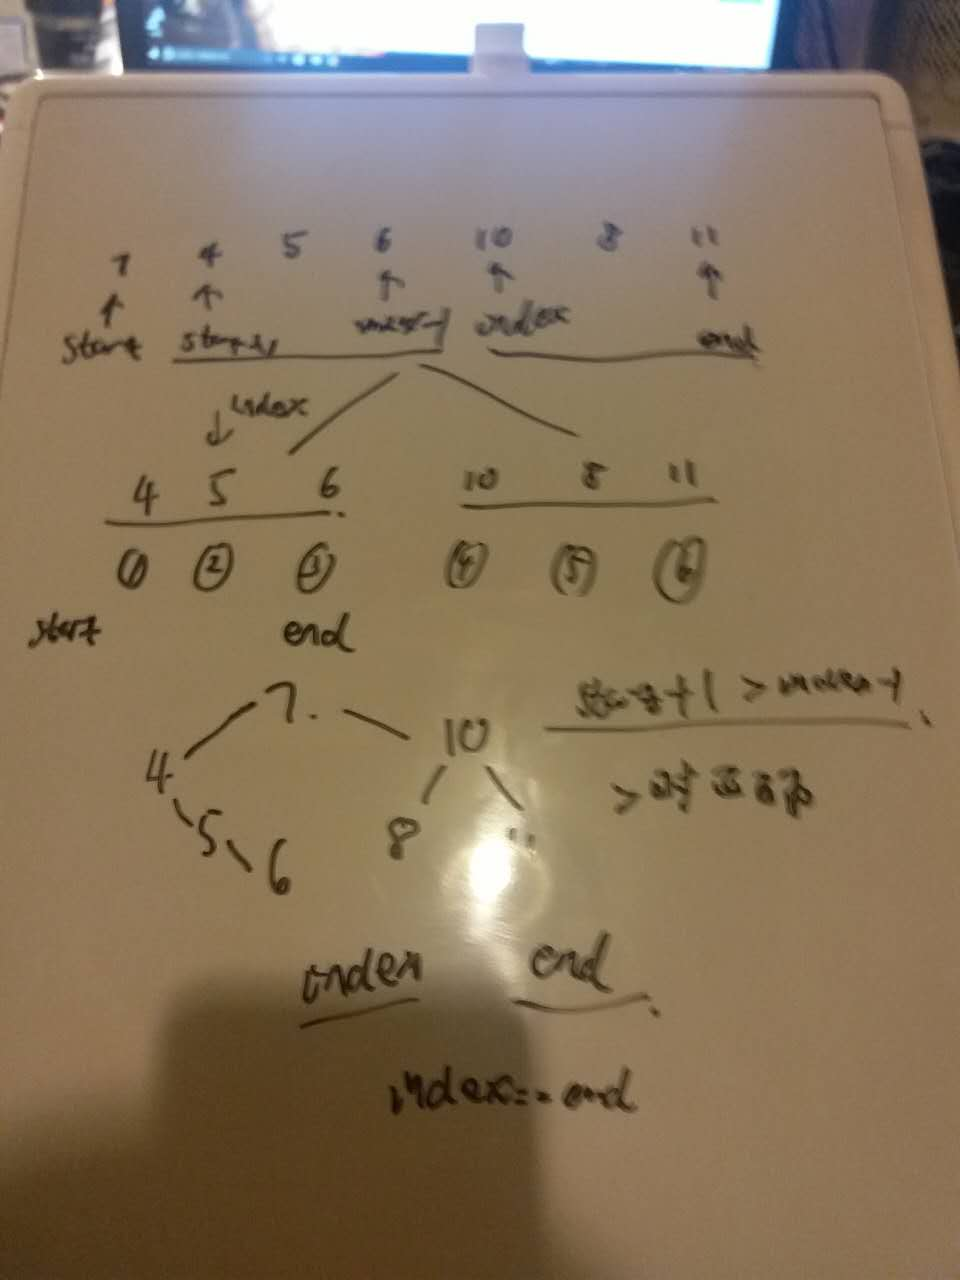 7 4 5 6 10 8 11
↑ ↑ ↑ ↑ ↑
start start+1 index-1 index end
↓ index
4 5 6 10 8 11
① ② ③ ④ ⑤ ⑥
start end
7.
4 10
5 8 11
6
start+1 > index-1
> 时
index end
index == end